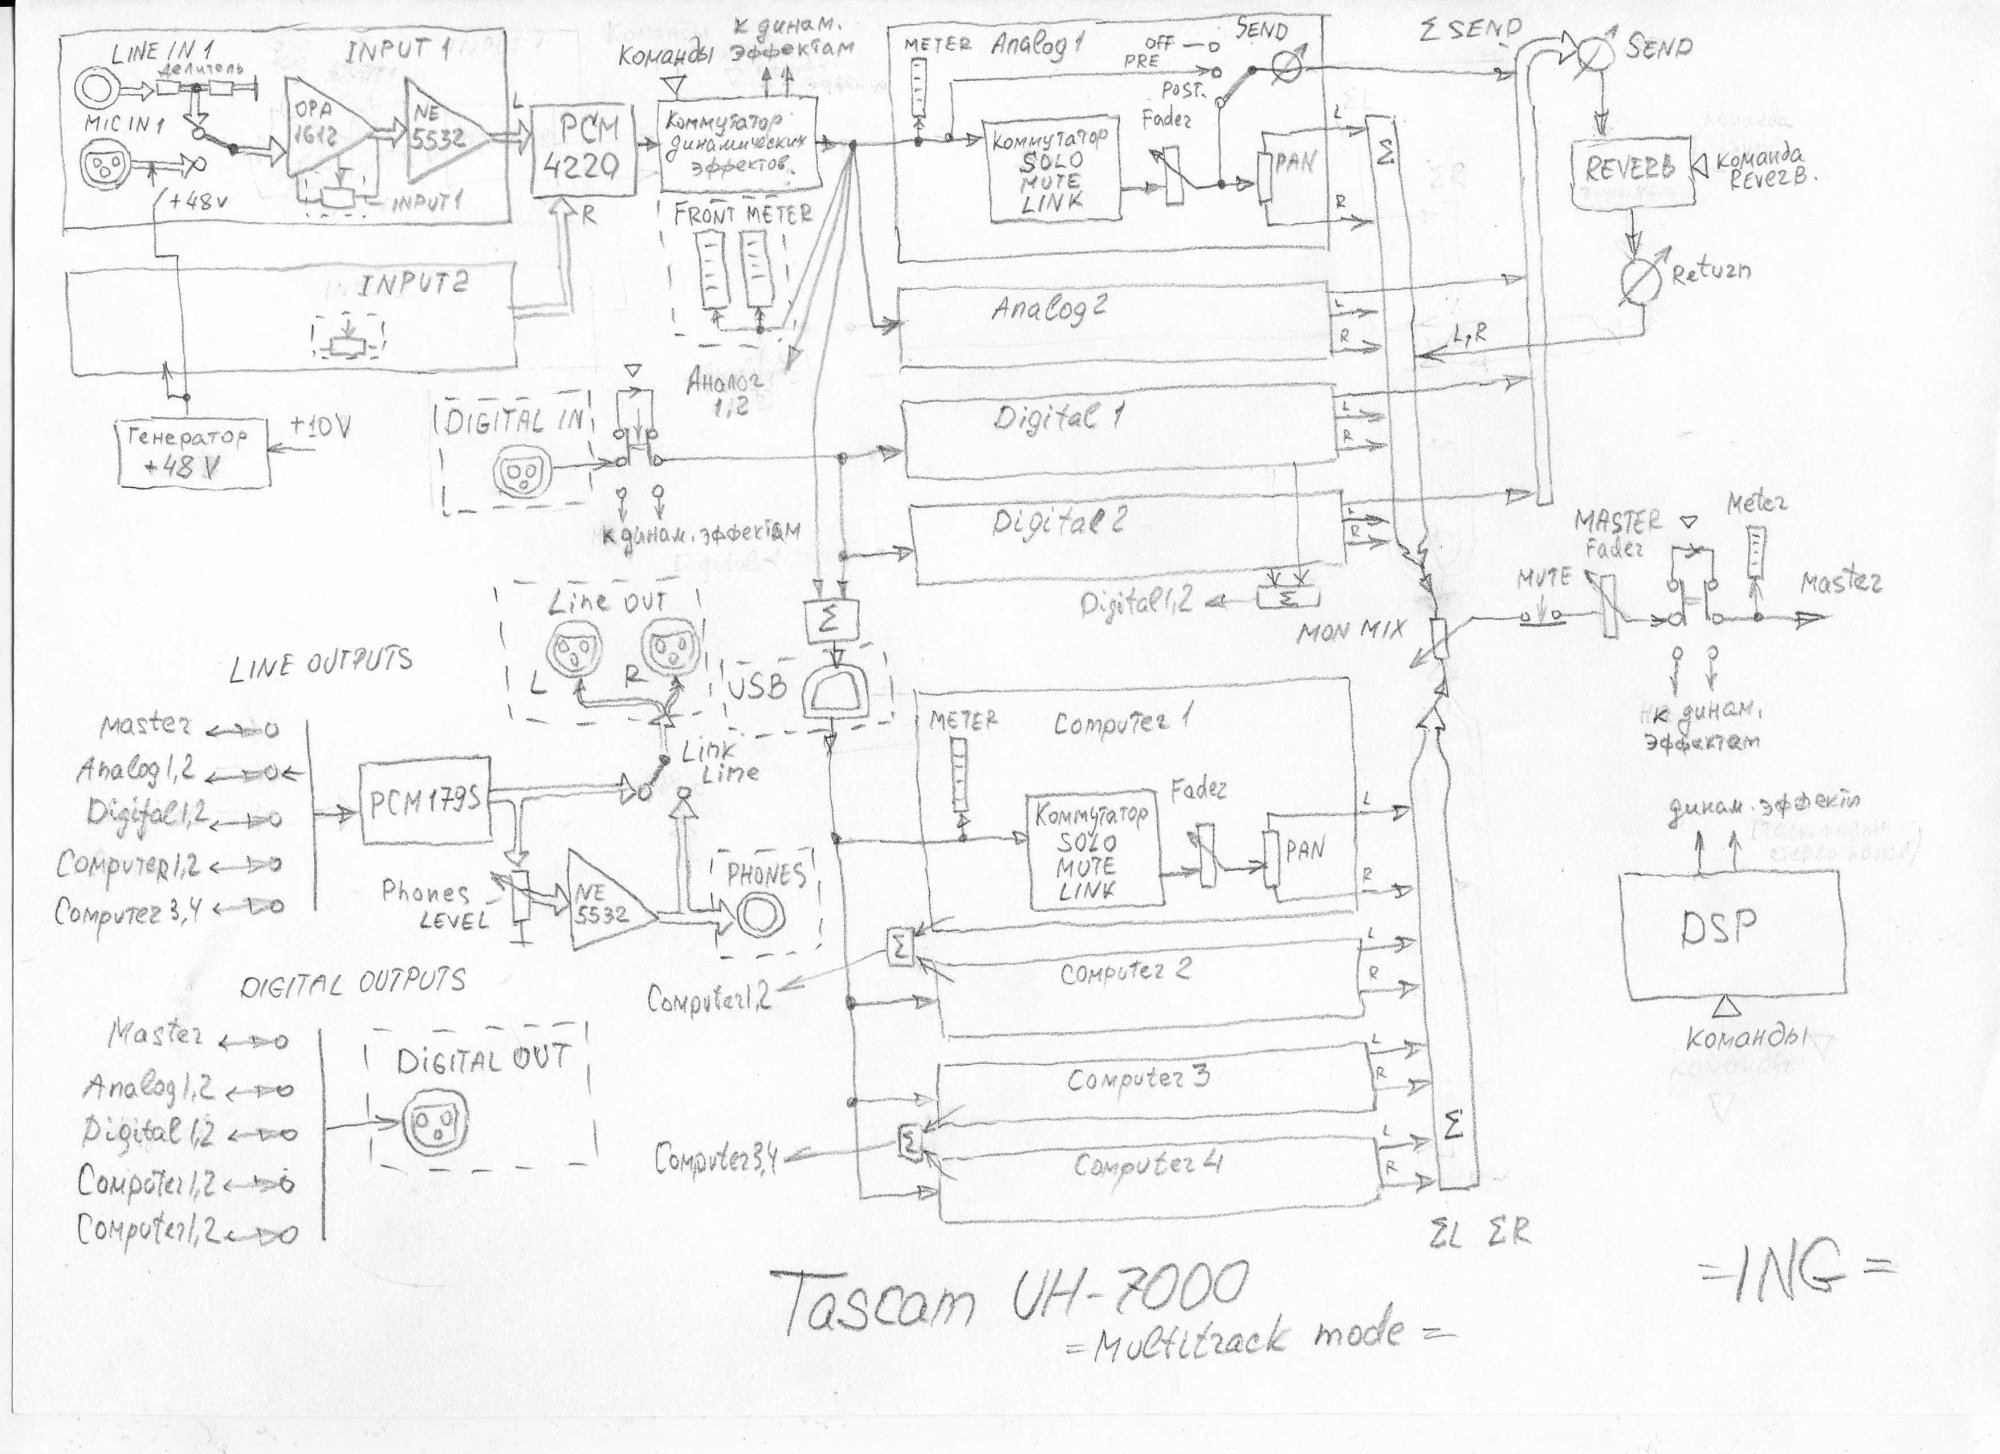 LINE IN 1
INPUT 1
делитель
MIC IN 1
OPA
1612
NE
5532
L
+48v
INPUT1
PCM
4220
R
INPUT2
Генератор
+48 V
+10V
Команды
к динам.
эффектам
Коммутатор
динамических
эффектов.
FRONT METER
Аналог
1,2
DIGITAL IN
к динам. эффектам
METER
Analog 1
OFF
PRE
POST.
SEND
Коммутатор
SOLO
MUTE
LINK
Fader
PAN
L
R
Σ
Analog 2
L
R
Digital 1
L
R
Digital 2
L
R
Digital 1,2
Σ
Σ SEND
SEND
REVERB
Команда
REVERB.
Return
L,R
MON MIX
MUTE
MASTER
Fader
Meter
Master
к динам.
эффектам
динам. эффекты
DSP
Команды
Line OUT
L
R
Σ
USB
Link
Line
LINE OUTPUTS
Master
Analog 1,2
Digital 1,2
Computer 1,2
Computer 3,4
PCM1795
Phones
LEVEL
NE
5532
PHONES
METER
Computer 1
Коммутатор
SOLO
MUTE
LINK
Fader
PAN
L
R
Σ
Computer 1,2
Computer 2
L
R
Computer 3
L
R
Σ
Computer 3,4
Computer 4
L
R
Σ
ΣL ΣR
DIGITAL OUTPUTS
Master
Analog 1,2
Digital 1,2
Computer 1,2
Computer 1,2
DIGITAL OUT
Tascam UH-7000
= Multitrack mode =
=ING=